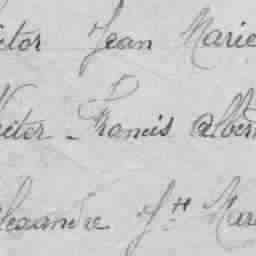 ictor Jean Marie
Victor - Francis Alber
lexandre Jh Mar